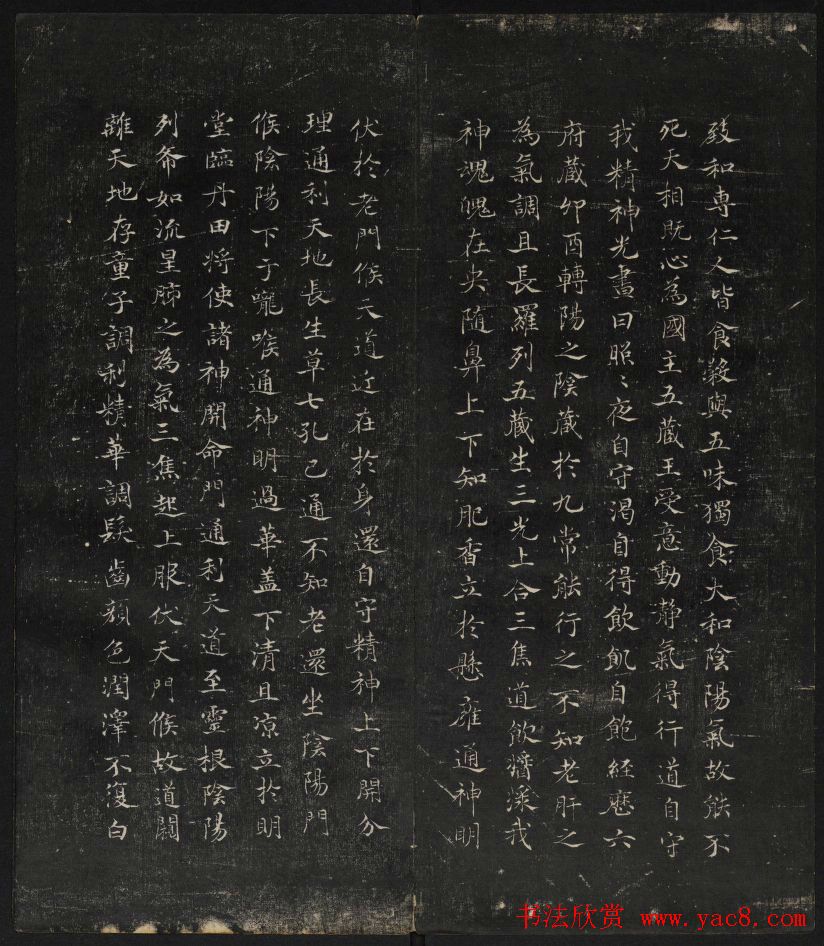 致和專仁人皆食穀與五味獨食大和陰陽氣故能不
死天相既心為國主五藏王受意動靜氣得行道自守
我精神光晝日照〻夜自守渴自得飲飢自飽經歷六
府藏卯酉轉陽之陰藏於九常能行之不知老肝之
為氣調且長羅列五藏生三光上合三焦道飲醬漿我
神魂魄在央隨鼻上下知肥香立於懸雍通神明
伏於老門候天道近在於身還自守精神上下開分
理通利天地長生草七孔已通不知老還坐陰陽門
候陰陽下于嚨喉通神明過華蓋下清且涼立於明
堂臨丹田將使諸神開命門通利天道至靈根陰陽
列布如流星肺之為氣三焦起上服伏天門候故道闚
離天地存童子調利精華調髮齒顏色潤澤不復白
书法欣赏 www.yac8.com